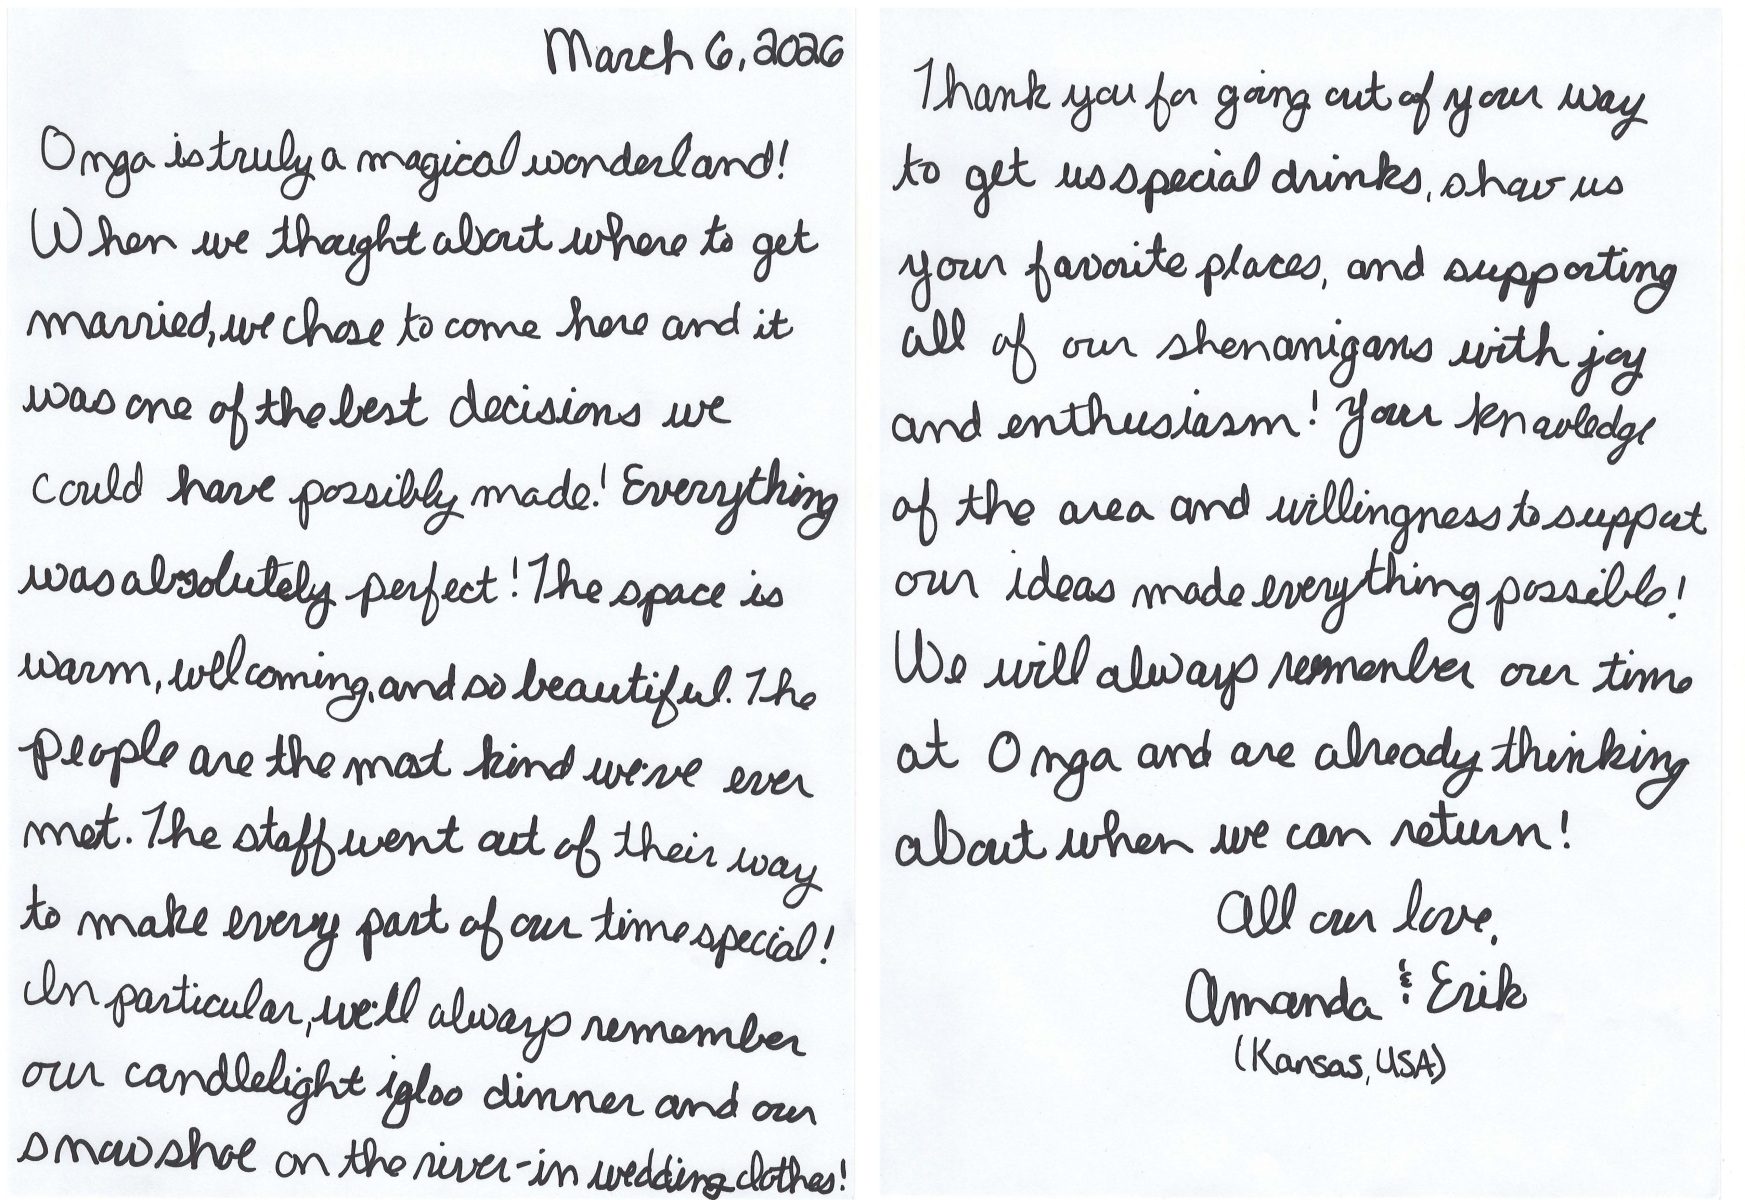 March 6, 2026
Onga is truly a magical wonderland!
When we thought about where to get
married, we chose to come here and it
was one of the best decisions we
could have possibly made! Everything
was absolutely perfect! The space is
warm, wellcoming, and so beautiful. The
people are the most kind we've ever
met. The staff went out of their way
to make every part of our time special!
In particular, we'll always remember
our candlelight igloo dinner and our
snowshoe on the river-in wedding clothes!
Thank you for going out of your way
to get us special drinks, show us
your favorite places, and supporting
all of our shenanigans with joy
and enthusiasm! Your knowledge
of the area and willingness to support
our ideas made everything possible!
We will always remember our time
at Onga and are already thinking
about when we can return!
All our love,
Amanda & Erik
(Kansas, USA)